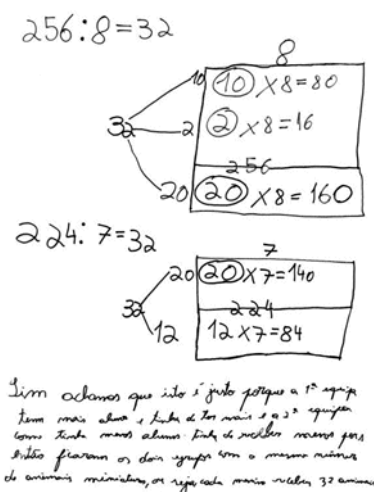 256:8=32
8
10 10 X8=80
32 2 2 X8=16
256
20 20 X8=160
224:7=32
7
20 20 X7=140
32 224
12 12X7=84
Sim achamos que isto é justo porque a 1ª equipa
tem mais alunos e tinha de ter mais e a 2ª equipa
como tinha menos alunos tinha de receber menos pois
então ficaram os dois grupos com o mesmo número
de animais miniatura, ou seja cada menino recebeu 32 animais